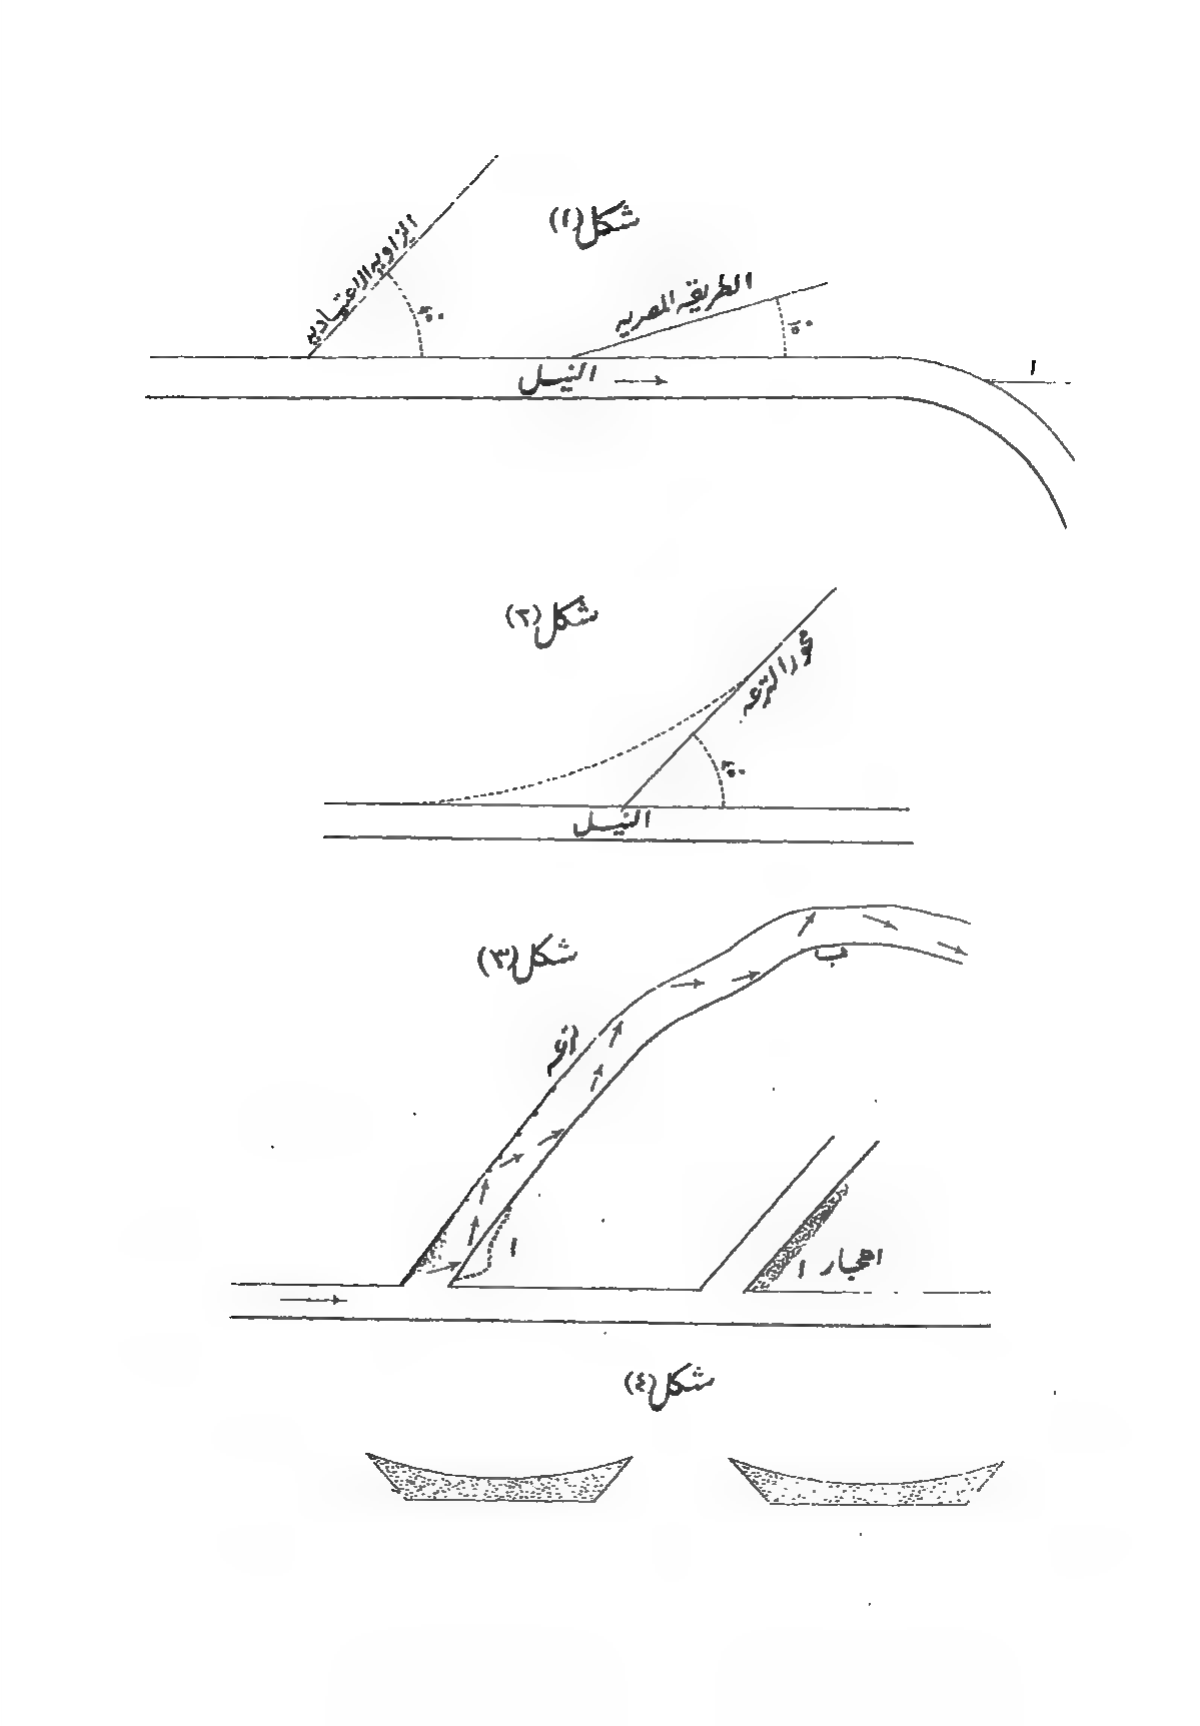 شكل (١)
الزاويه الاعتياديه
الطريقه المصريه
النيل
ا
شكل (٢)
محور الترعه
النيل
شكل (٣)
ب
ا
احجار ا
شكل (٤)